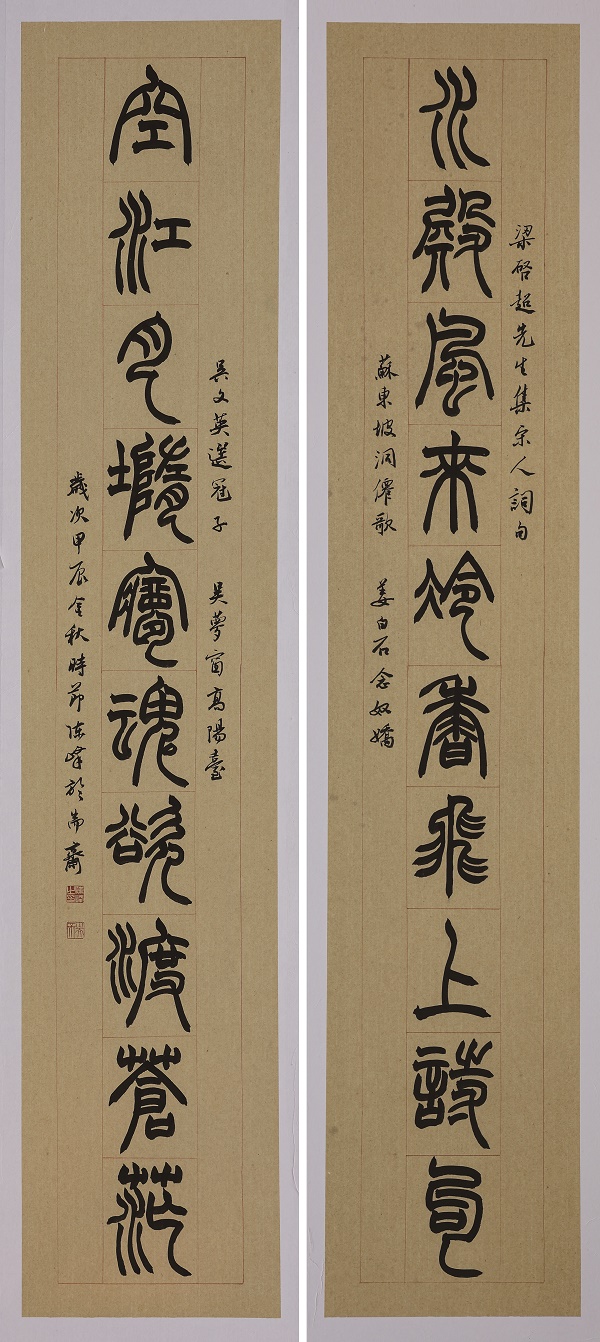 梁啓超先生集宋人詞句
水殿風來冷香飛上詩句
蘇東坡洞僊歌 姜白石念奴嬌
吳文英選冠子 吳夢窗高陽臺
空江月墮夢魂欲渡蒼茫
歲次甲辰金秋時節陳峰於耑齋